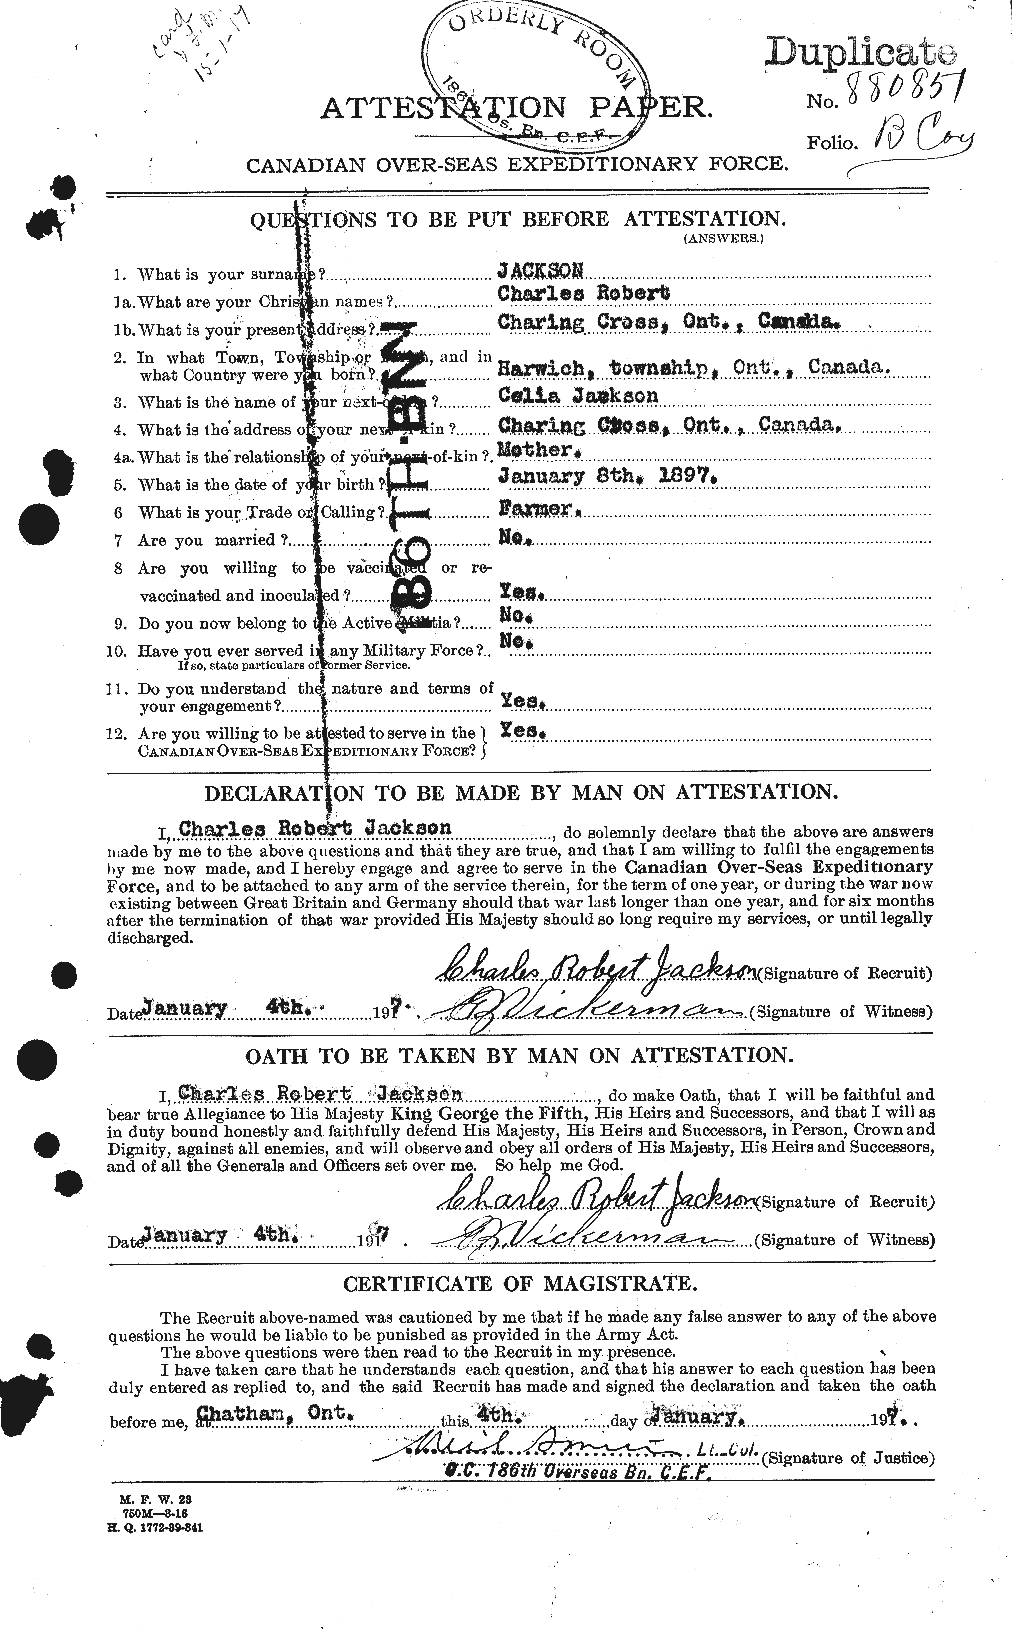 card
15-1-17
ORDERLY ROOM
186 Os. Bn. C.E.F.
Duplicate
No. 880851
Folio. B Coy
ATTESTATION PAPER.
CANADIAN OVER-SEAS EXPEDITIONARY FORCE.
QUESTIONS TO BE PUT BEFORE ATTESTATION.
(ANSWERS.)
1. What is your surname? JACKSON
1a. What are your Christian names? Charles Robert
1b. What is your present address? Charing Cross, Ont., Canada.
2. In what Town, Township or Parish, and in
what Country were you born? Harwich, township, Ont., Canada.
3. What is the name of your next-of-kin? Celia Jackson
4. What is the address of your next-of-kin? Charing Cross, Ont., Canada.
4a. What is the relationship of your next-of-kin? Mother.
5. What is the date of your birth? January 8th. 1897.
6 What is your Trade or Calling? Farmer.
7 Are you married? No.
8 Are you willing to be vaccinated or re-
vaccinated and inoculated? Yes.
9. Do you now belong to the Active Militia? No.
10. Have you ever served in any Military Force? No.
If so, state particulars of former Service.
11. Do you understand the nature and terms of
your engagement? Yes.
12. Are you willing to be attested to serve in the } Yes.
CANADIAN OVER-SEAS EXPEDITIONARY FORCE? }
186TH. BN
DECLARATION TO BE MADE BY MAN ON ATTESTATION.
I, Charles Robert Jackson, do solemnly declare that the above are answers
made by me to the above questions and that they are true, and that I am willing to fulfil the engagements
by me now made, and I hereby engage and agree to serve in the Canadian Over-Seas Expeditionary
Force, and to be attached to any arm of the service therein, for the term of one year, or during the war now
existing between Great Britain and Germany should that war last longer than one year, and for six months
after the termination of that war provided His Majesty should so long require my services, or until legally
discharged.
Charles Robert Jackson (Signature of Recruit)
Date January 4th. 1917. Vickerman (Signature of Witness)
OATH TO BE TAKEN BY MAN ON ATTESTATION.
I, Charles Robert Jackson, do make Oath, that I will be faithful and
bear true Allegiance to His Majesty King George the Fifth, His Heirs and Successors, and that I will as
in duty bound honestly and faithfully defend His Majesty, His Heirs and Successors, in Person, Crown and
Dignity, against all enemies, and will observe and obey all orders of His Majesty, His Heirs and Successors,
and of all the Generals and Officers set over me. So help me God.
Charles Robert Jackson (Signature of Recruit)
Date January 4th. 1917. Vickerman (Signature of Witness)
CERTIFICATE OF MAGISTRATE.
The Recruit above-named was cautioned by me that if he made any false answer to any of the above
questions he would be liable to be punished as provided in the Army Act.
The above questions were then read to the Recruit in my presence.
I have taken care that he understands each question, and that his answer to each question has been
duly entered as replied to, and the said Recruit has made and signed the declaration and taken the oath
before me, at Chatham, Ont. this 4th. day of January. 1917.
Lt. Col. (Signature of Justice)
O.C. 186th Overseas Bn. C.E.F.
M. F. W. 23
750M—8-16
H. Q. 1772-39-841